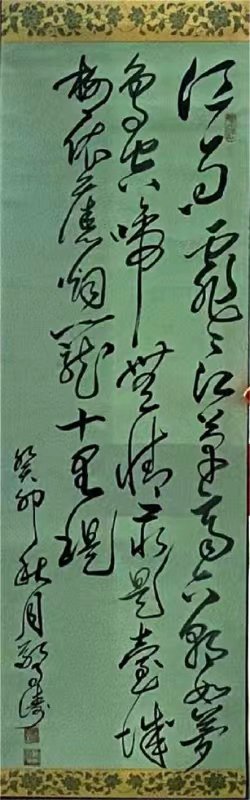 江雨霏々江草齊六朝如夢
鳥空啼無情最是臺城
柳依舊烟籠十里堤
癸卯秋月